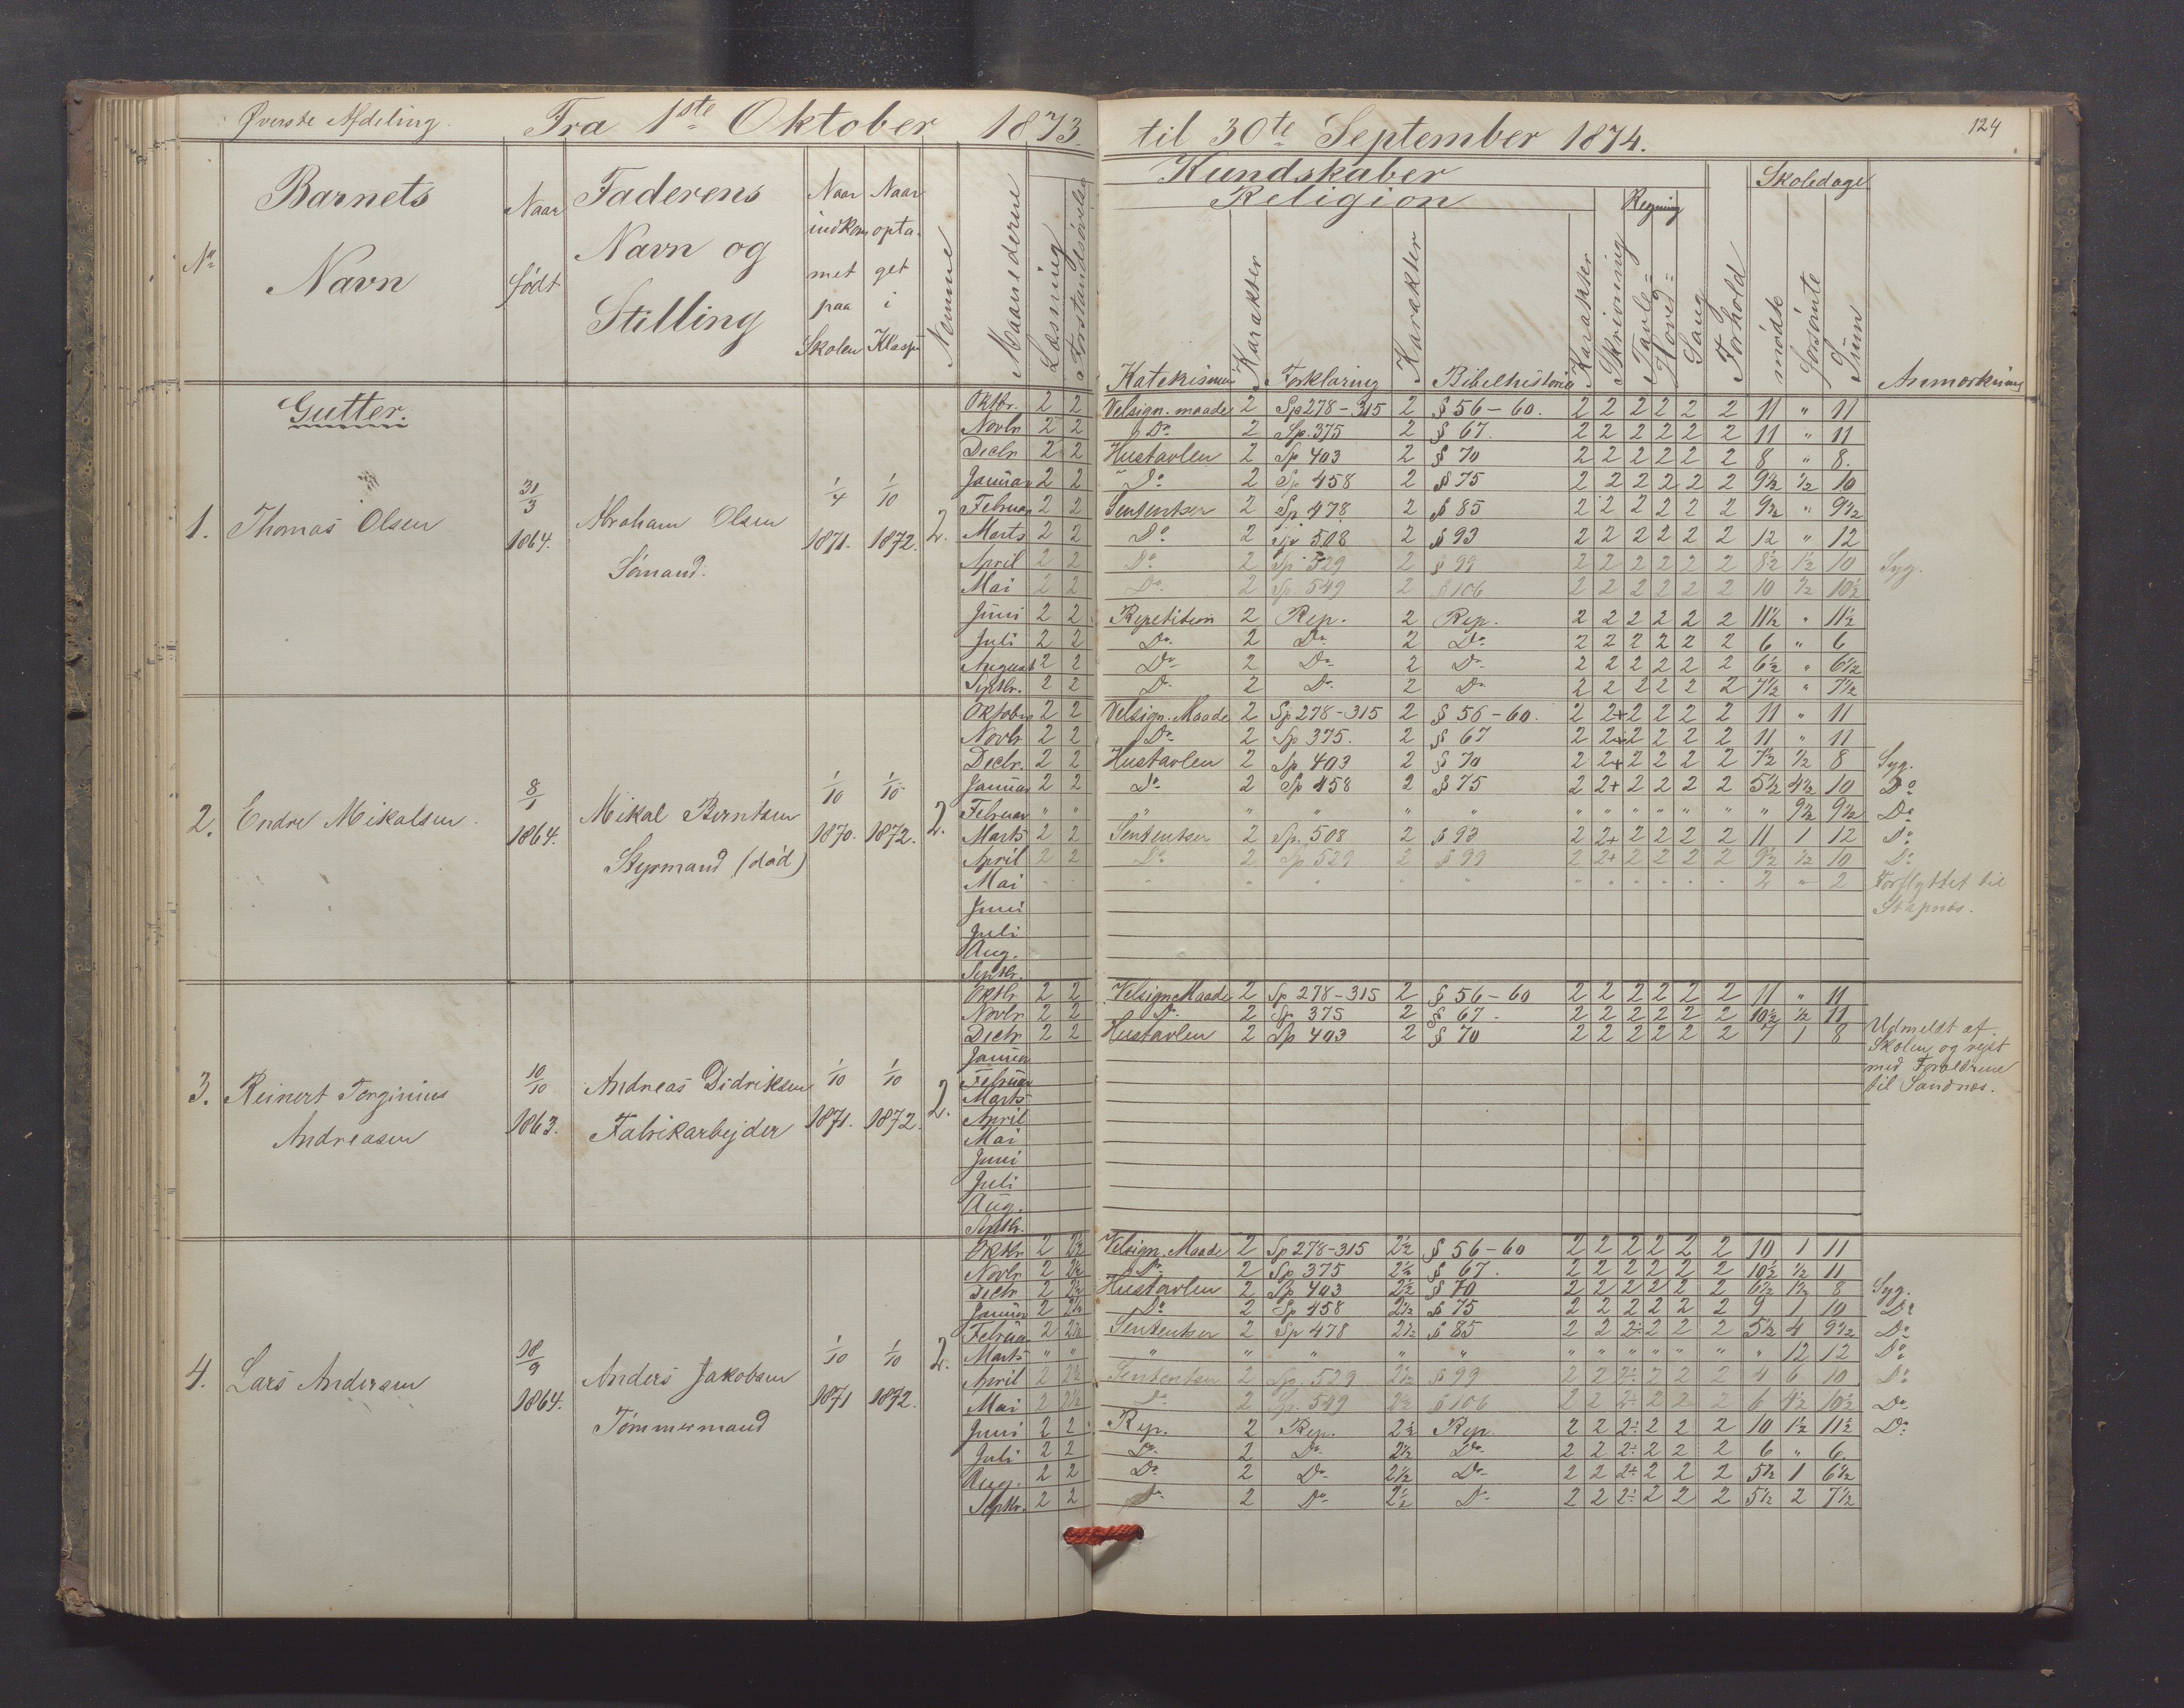 Øverste Afdeling. Fra 1ste Oktober 1873. til 30te September 1874. 124
No
Barnets Navn
Naar født
Faderens Navn og Stilling
Naar indkommet paa Skolen
Naar optaget i Klassen
Nemme
Maanederne
Læsning
Forstandsøvelse
Kundskaber
Religion
Katekismus Karakter Forklaring Karakter Bibelhistorie Karakter
Skrivning
Regning
Tavle= Hoved=
Sang
Forhold
Skoledage
mødte forsømte Sum
Anmærkning
Gutter.
1. Thomas Olsen 31/3 1864. Abraham Olsen Sømand. 1/4 1871. 1/10 1872. 2.
Oktbr. 2 2 Velsign. maade 2 Sp 278-315 2 § 56-60. 2 2 2 2 2 2 11 " 11
Novbr 2 2 Do 2 Sp. 375 2 § 67. 2 2 2 2 2 2 11 " 11
Decbr 2 2 Hustavlen 2 Sp 403 2 § 70 2 2 2 2 2 2 8 " 8.
Januar 2 2 Do 2 Sp 458 2 § 75 2 2 2 2 2 2 9½ ½ 10
Februar 2 2 Sententser 2 Sp 478 2 § 85 2 2 2 2 2 2 9½ " 9½
Marts 2 2 Do 2 Sp 508 2 § 93 2 2 2 2 2 2 12 " 12
April 2 2 Do 2 Sp 529 2 § 99 2 2 2 2 2 2 8½ 1½ 10 Syg.
Mai 2 2 Do. 2 Sp 549 2 § 106 2 2 2 2 2 2 10 ½ 10½
Juni 2 2 Repetition 2 Rep. 2 Rep. 2 2 2 2 2 2 11½ " 11½
Juli 2 2 Do. 2 Do. 2 Do. 2 2 2 2 2 2 6 " 6
August 2 2 Do 2 Do 2 Do 2 2 2 2 2 2 6½ " 6½
Septbr. 2 2 Do. 2 Do. 2 Do. 2 2 2 2 2 2 7½ " 7½
2. Endre Mikalsen. 8/1 1864. Mikal Berntsen Styrmand (død) 1/10 1870. 1/10 1872. 2.
Oktober 2 2 Velsign. Maade 2 Sp 278-315 2 § 56-60. 2 2+ 2 2 2 2 11 " 11
Novbr 2 2 Do 2 Sp 375. 2 § 67 2 2+ 2 2 2 2 11 " 11
Decbr. 2 2 Hustavlen 2 Sp 403 2 § 70 2 2+ 2 2 2 2 7½ ½ 8 Syg.
Januar 2 2 Do 2 Sp 458 2 § 75 2 2+ 2 2 2 2 5½ 4½ 10 Do
Februar " " " " " " " " " " " " " " 9½ 9½ Do
Marts 2 2 Sententser 2 Sp. 508 2 § 93 2 2+ 2 2 2 2 11 1 12 Do
April 2 2 Do 2 Sp 529 2 § 99 2 2+ 2 2 2 2 9½ ½ 10 Do
Mai " " " " " " " " " " " " " 2 " 2 Forflyttet til
Juni Stapnæs.
Juli
Aug.
Septbr.
3. Reinert Torginius Andreasen 10/10 1863. Andreas Didriksen Fabrikarbejder 1/10 1871. 1/10 1872. 2.
Oktbr 2 2 Velsign Maade 2 Sp 278-315 2 § 56-60 2 2 2 2 2 2 11 " 11
Novbr 2 2 Do. 2 Sp 375 2 § 67. 2 2 2 2 2 2 10½ ½ 11
Decbr 2 2 Hustavlen 2 Sp 403 2 § 70 2 2 2 2 2 2 7 1 8 Udmeldt af
Januar Skolen og rejst
Februar med Forældrene
Marts til Sandnæs.
April
Mai
Juni
Juli
Aug.
Septbr.
4. Lars Andersen 18/9 1864. Anders Jakobsen Tømmermand 1/10 1871 1/10 1872. 2.
Oktbr 2 2½ Velsign. Maade 2 Sp 278-315 2½ § 56-60 2 2 2 2 2 2 10 1 11
Novbr 2 2½ Do. 2 Sp 375 2½ § 67. 2 2 2 2 2 2 10½ ½ 11
Decbr 2 2½ Hustavlen 2 Sp 403 2½ § 70 2 2 2 2 2 2 6½ 1½ 8 Syg.
Januar 2 2½ Do 2 Sp 458 2½ § 75 2 2 2 2 2 2 9 1 10 Do
Februar 2 2½ Sententser 2 Sp 478 2½ § 85 2 2 2÷ 2 2 2 5½ 4 9½ Do
Marts " " " " " " " " " " " " " " 12 12 Do
April 2 2½ Sententser 2 Sp. 529 2½ § 99 2 2 2÷ 2 2 2 4 6 10 Do
Mai 2 2½ Do 2 Sp. 549 2½ § 106 2 2 2÷ 2 2 2 6 4½ 10½ Do
Juni 2 2 Rep. 2 Rep. 2½ Rep. 2 2 2÷ 2 2 2 10 1½ 11½ Do
Juli 2 2 Do. 2 Do. 2½ Do. 2 2 2÷ 2 2 2 6 " 6.
Aug. 2 2 Do 2 Do. 2½ Do. 2 2 2÷ 2 2 2 5½ 1 6½
Septbr. 2 2 Do. 2 Do. 2½ Do. 2 2 2÷ 2 2 2 5½ 2 7½